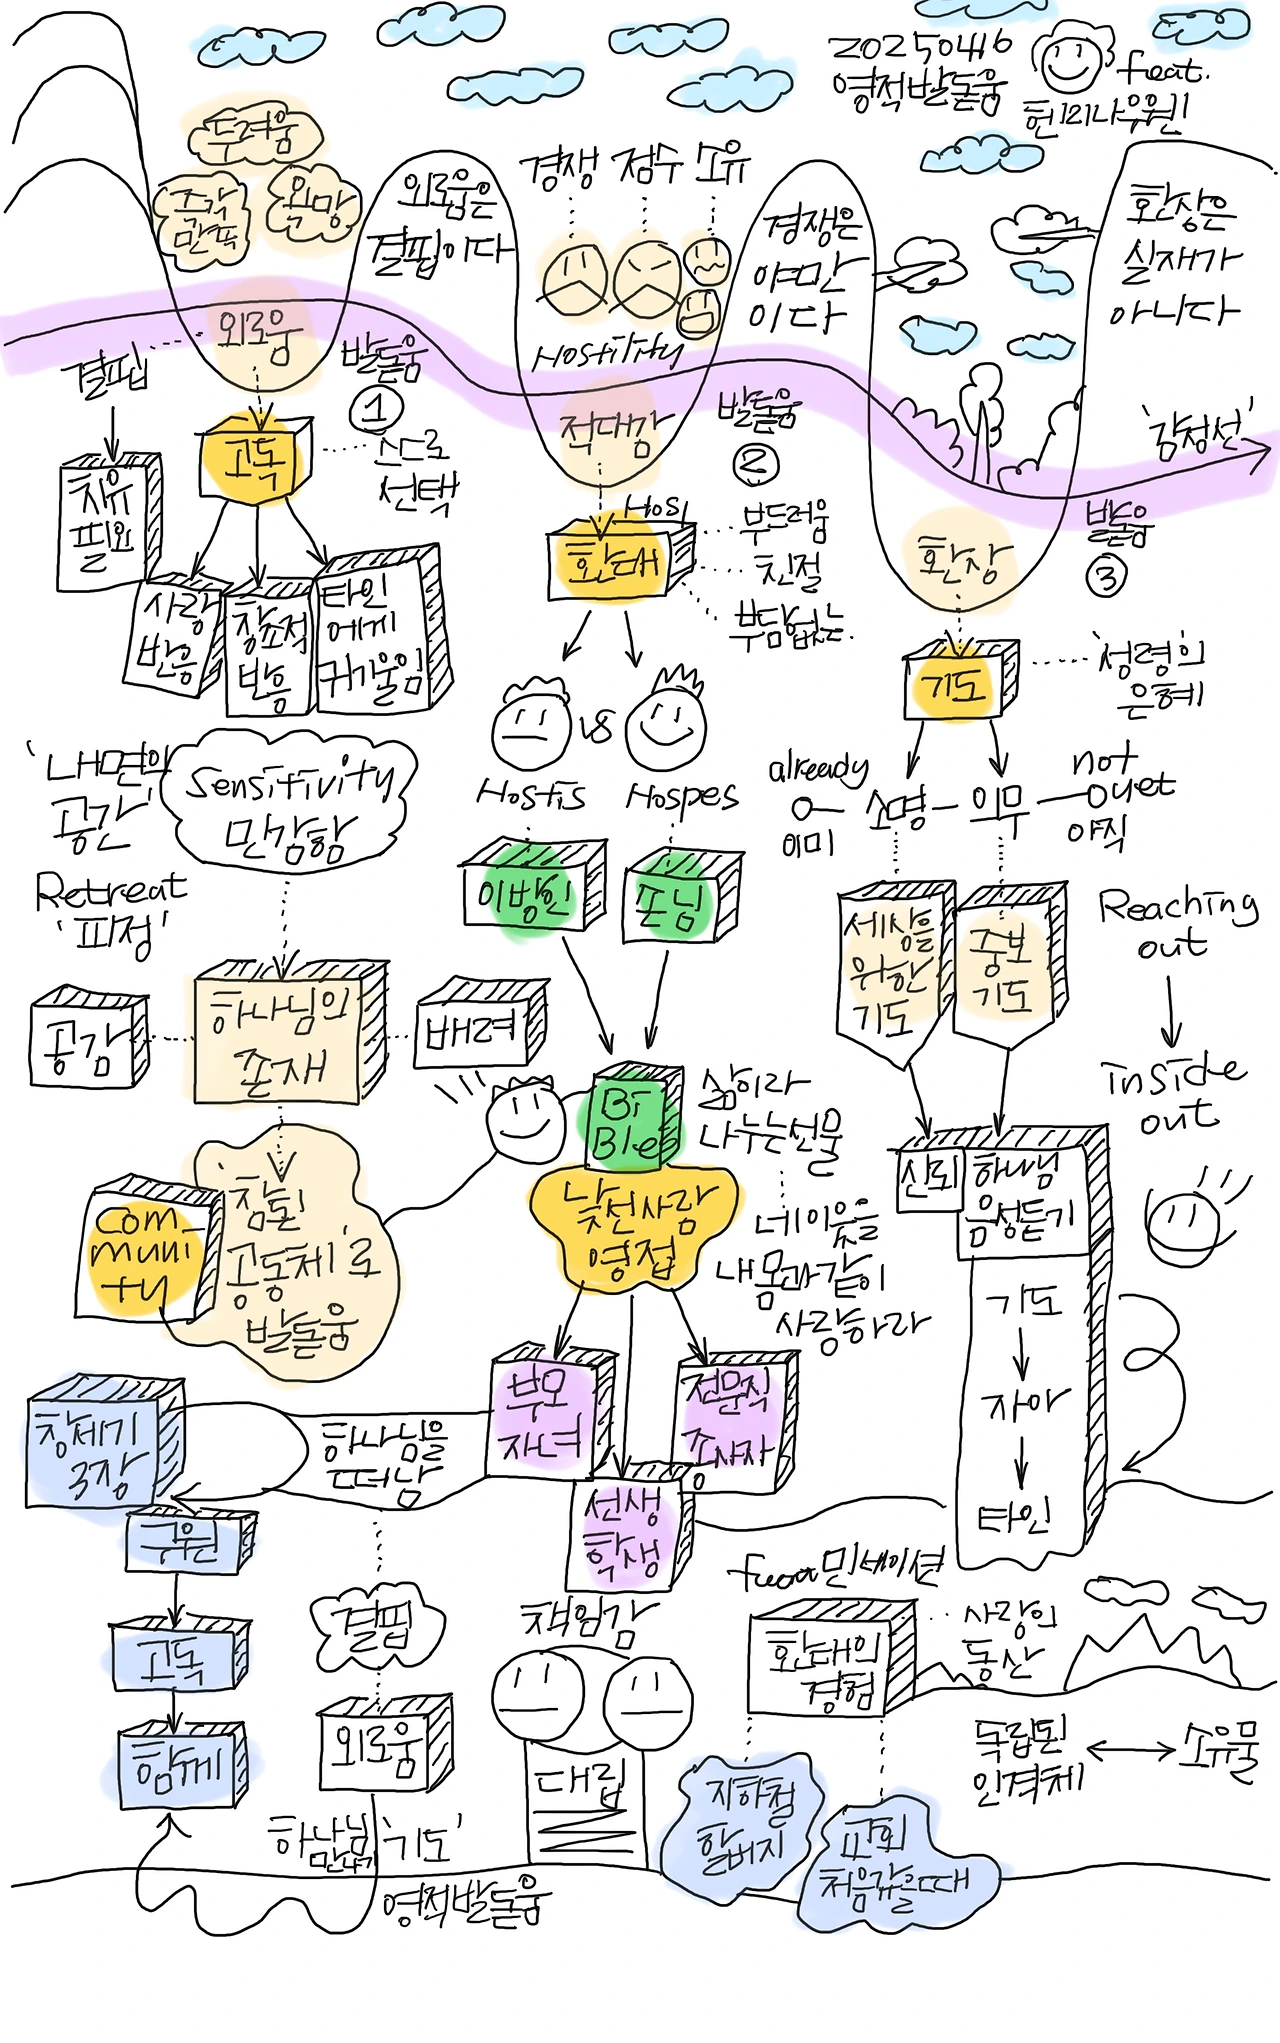 20250416
영적발돋움
feat.
헨리나우웬!!
두려움
즉각
만족
욕망
외로움은
결핍이다
경쟁 점수 소유
경쟁은
야만
이다
환상은
실재가
아니다
외로움
결핍
발돋움
①
Hostility
적대감
발돋움
②
'감정선'
환상
발돋움
③
고독
스스로
선택
치유
필요
사랑
반응
창조적
반응
타인
에게
귀기울임
Hosp
환대
부드러움
친절
부담없는
기도
'성령의
은혜'
'내면의
공간'
Sensitivity
민감함
Retreat
'피정'
vs
Hostis
Hospes
이방인
손님
already
이미
소명
의무
not
yet
아직
세상을
위한
기도
중보
기도
Reaching
out
inside
out
공감
하나님의
존재
배려
Bi
Ble
삶이라
나누는선물
낯선사람
영접
네이웃을
내몸과같이
사랑하라
신뢰
하나님
음성듣기
기도
자아
타인
Com-
muni
ty
참된
'공동체'로
발돋움
부모
자녀
전문직
종사자
선생
학생
창세기
3장
하나님을
떠남
구원
고독
함께
결핍
외로움
하나님
만나기
'기도'
영적발돋움
책임감
대립
from민세이션
환대의
경험
사랑의
동산
지하철
할버지
교회
처음갔을때
독립된
인격체
소유물